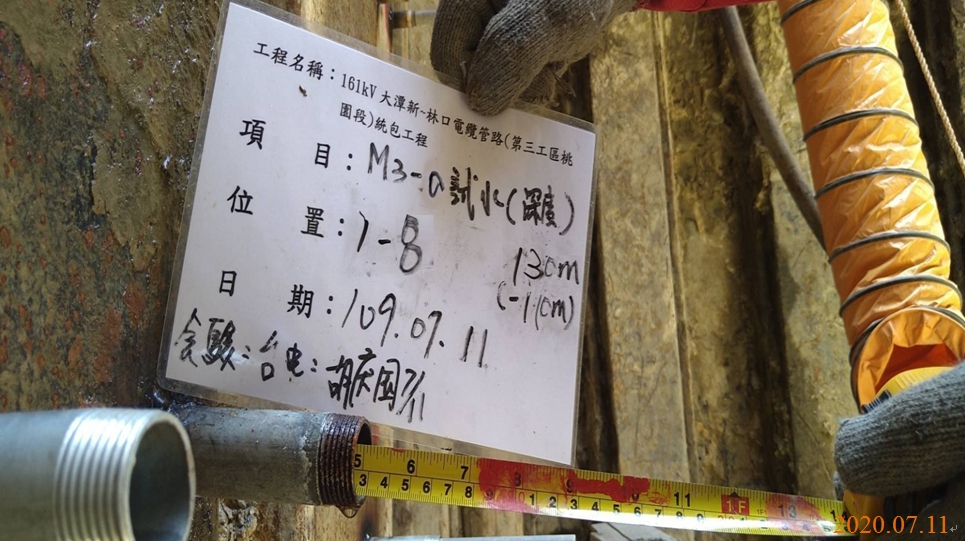 工程名稱：161kV大潭新~林口電纜管路(第三工區桃
園段)統包工程
項 目：M3-a試水(深度)
位 置：1-8 13cm
(-11cm)
日 期：109.07.11
會驗：台電：胡庆国7/11
5 6 7 8 9 11 1F 13
3 4 5 6 7 8 9 1 2 3 4 5 6 7 8 9
2020.07.11